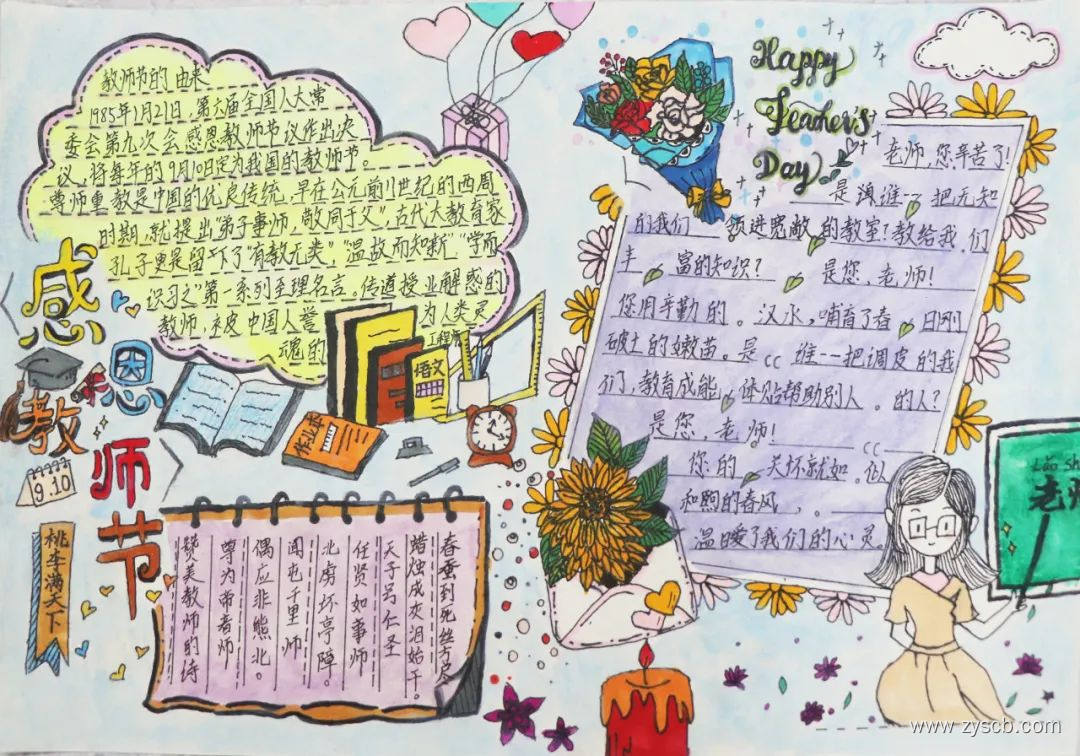 感恩教师节
9.10
桃李满天下
教师节的由来
1985年1月21日，第六届全国人大常
委会第九次会感恩教师节议作出决
议，将每年的9月10日定为我国的教师节。
尊师重教是中国的优良传统，早在公元前11世纪的西周
时期，就提出"弟子事师，敬同于父"，古代大教育家
孔子更是留下了"有教无类"，"温故而知新""学而
识习之"第一系列至理名言，传道授业解惑的
教师，被中国人誉为人类灵
魂的工程师
语文
作业本
Happy
Teacher's
Day
老师，您辛苦了！
是 谁一把无知
的我们 领进宽敞的教室？教给我们
丰富的知识？ 是您，老师！
您用辛勤的。汉水，哺育了春 日刚
破土的嫩苗。是 谁一把调皮的我
们，教育成能，体贴帮助别人。的人？
是您，老师！
你的 关坏就如。似
和煦的春风，。
温暖了我们的心灵
Lǎo Sh
老师
春蚕到死丝方尽
蜡烛成灰泪始干。
天子号仁圣
任贤如事师
北虏坏亭障。
闻屯千里师
偶应非熊北。
尊为帝者师
赞美教师的诗
www.zyscb.com